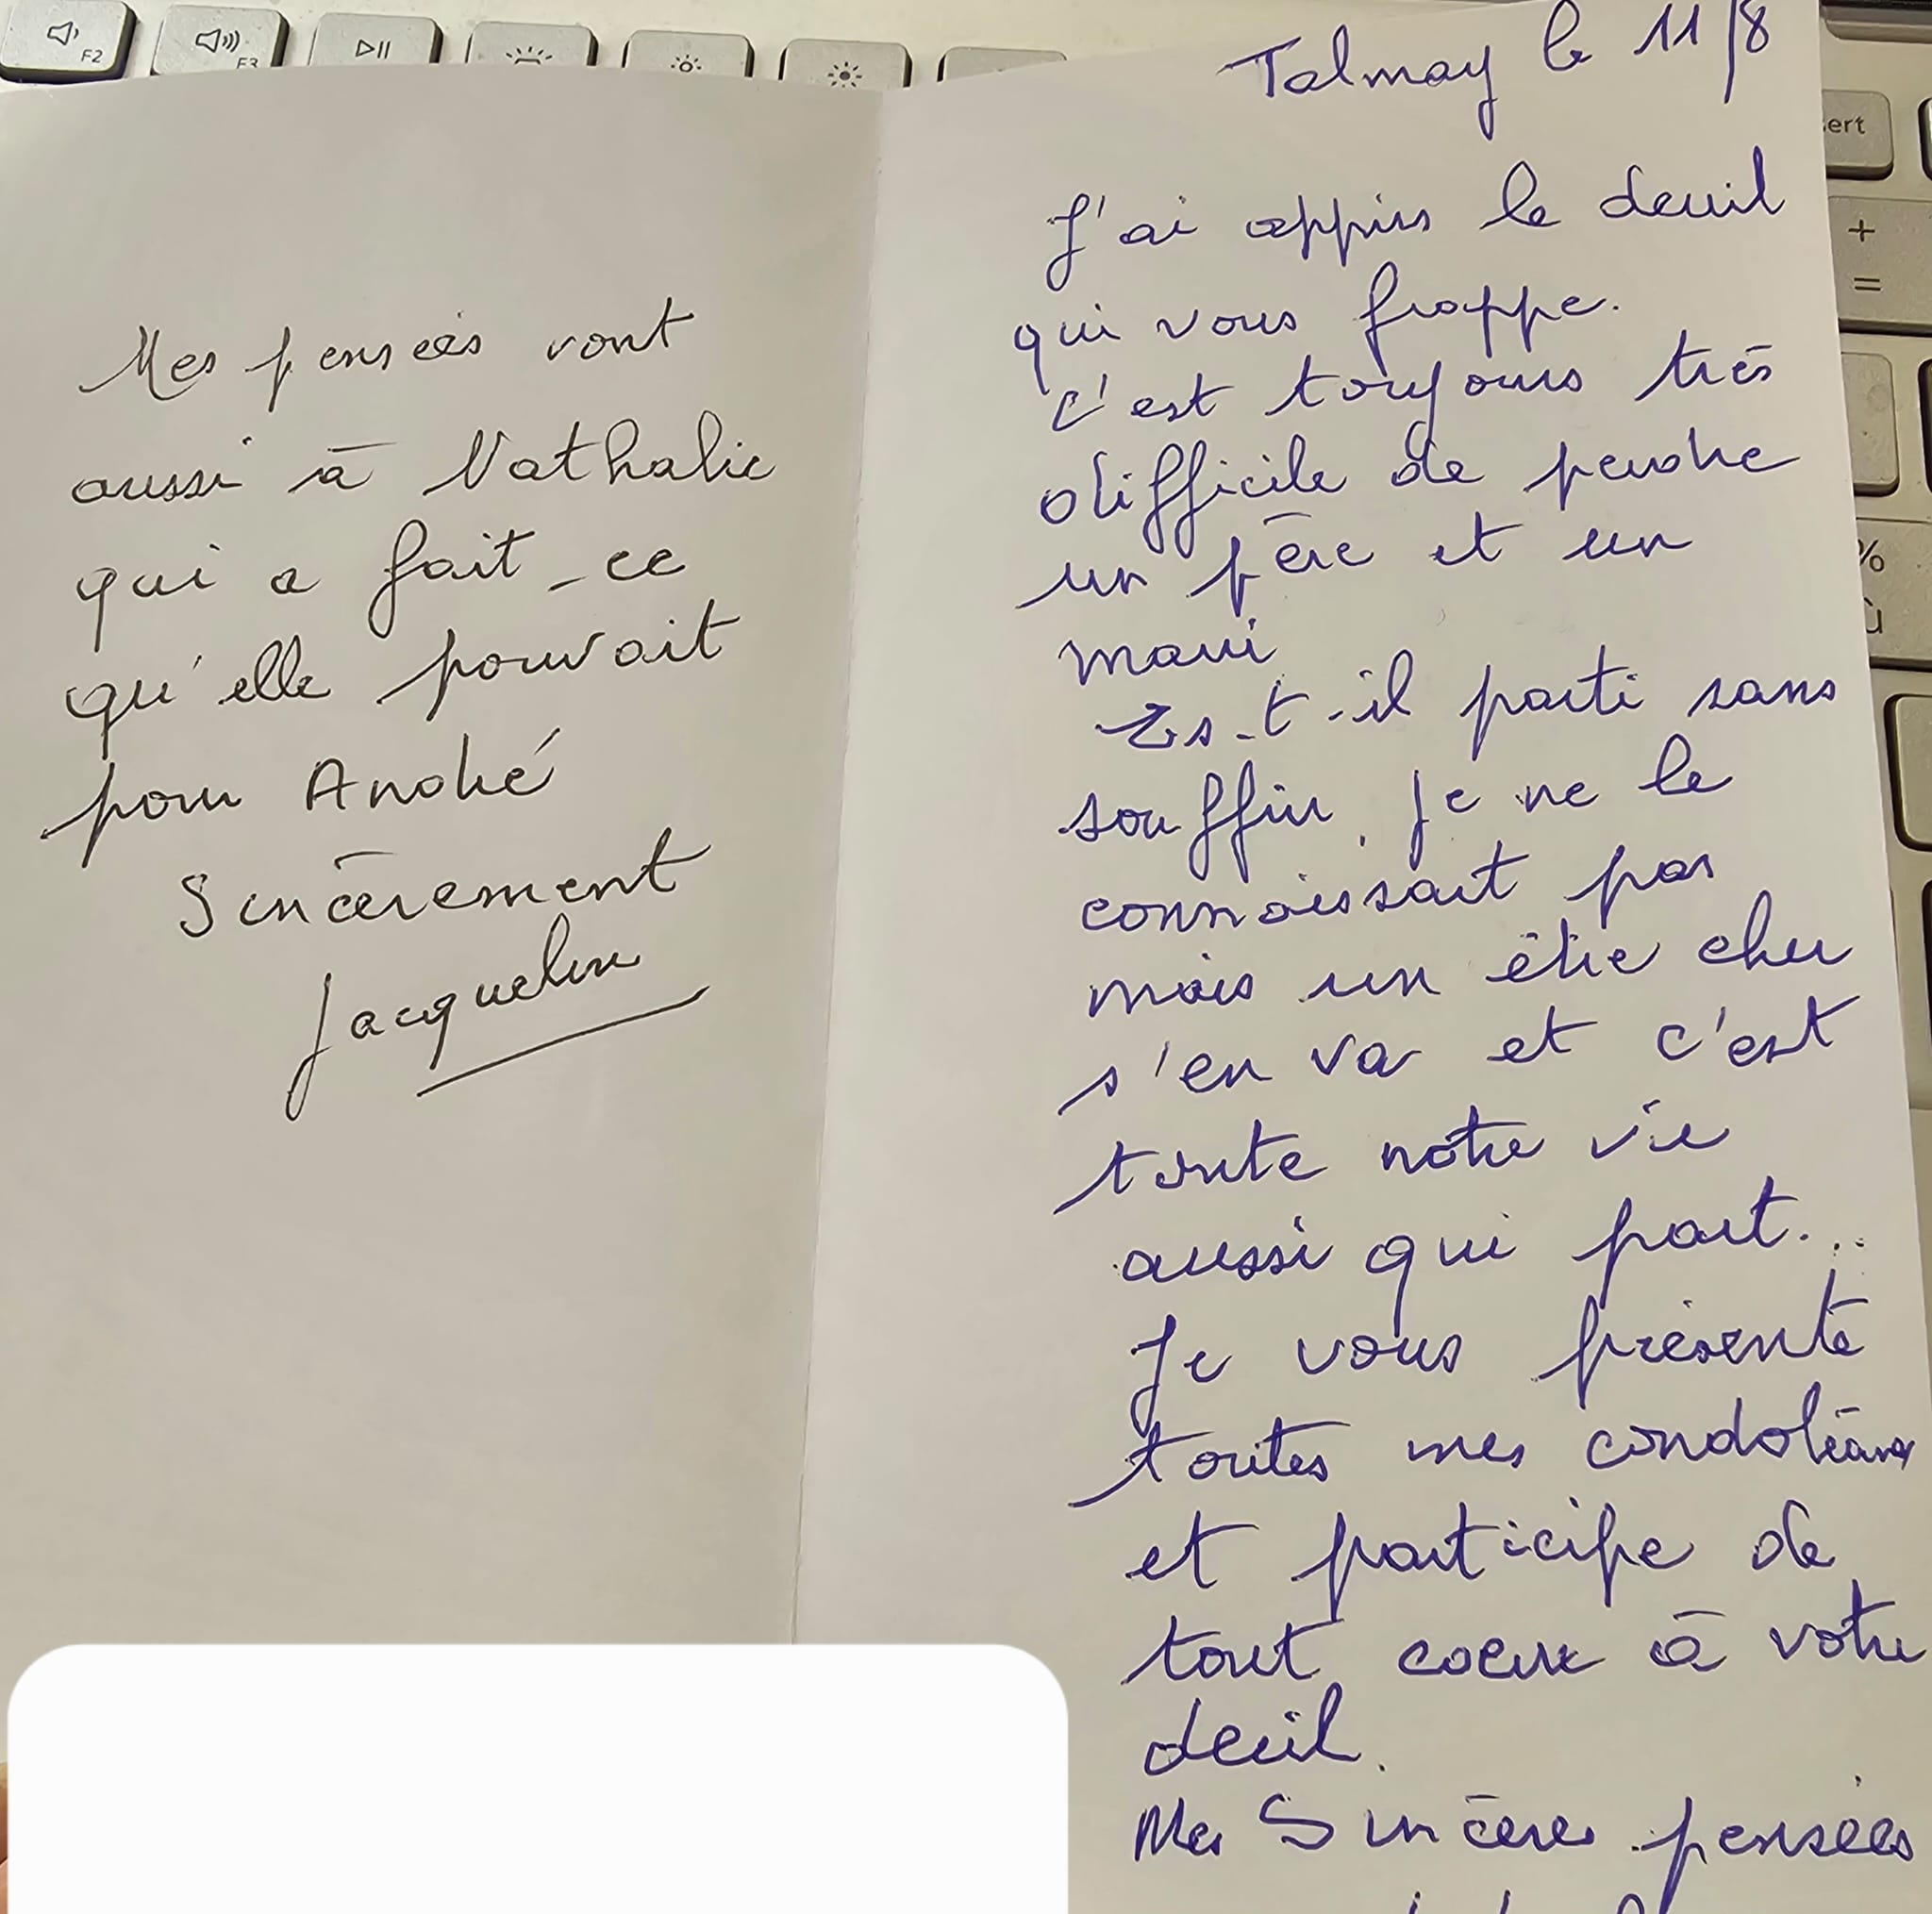 F2
F3
ert
+
=
%
ù
Mes pensées vont
aussi à Nathalie
qui a fait ce
qu'elle pouvait
pour André
Sincèrement
Jacqueline
Talmay le 11/8
J'ai appris le deuil
qui vous frappe.
C'est toujours très
difficile de perdre
un père et un
mari
Es-t-il parti sans
souffrir. Je ne le
connaissait pas
mais un être cher
s'en va et c'est
toute notre vie
aussi qui part...
Je vous présente
toutes mes condoléances
et participe de
tout coeur à votre
deuil.
Mes Sincères pensées